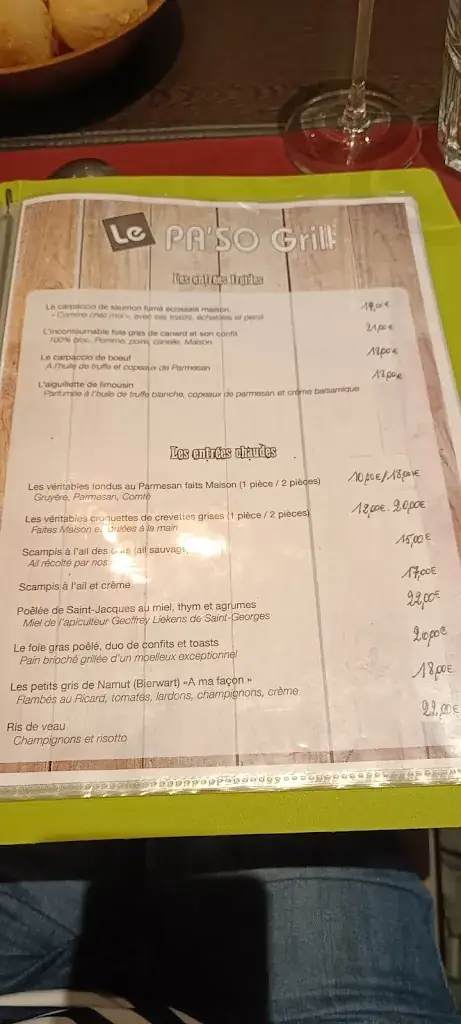 Le PA'SO Grill
Les entrées froides
Le carpaccio de saumon fumé écossais maison
« Comme chez moi », avec ses toasts, échalotes et persil
L'incontournable foie gras de canard et son confit 21,00€
100% bloc, Pomme, poire, canelle, Maison
Le carpaccio de boeuf
A l'huile de truffe et copeaux de Parmesan
L'aiguillette de limousin
Parfumée à l'huile de truffe blanche, copeaux de parmesan et crème balsamique
Les entrées chaudes
Les véritables fondus au Parmesan faits Maison (1 pièce / 2 pièces) 10,00€/18,00€
Gruyère, Parmesan, Comté
Les véritables croquettes de crevettes grises (1 pièce / 2 pièces) 12,00€. 20,00€
Faites Maison et roulées à la main
Scampis à l'ail des (ail sauvage 15,00€
Ail récolté par nos
Scampis à l'ail et crème 17,00€
Poêlée de Saint-Jacques au miel, thym et agrumes 22,00€
Miel de l'apiculteur Geoffrey Liekens de Saint-Georges
Le foie gras poêlé, duo de confits et toasts 20,00€
Pain brioché grillée d'un moelleux exceptionnel
Les petits gris de Namut (Bierwart) «A ma façon » 18,00€
Flambés au Ricard, tomates, lardons, champignons, crème
Ris de veau 22,00€
Champignons et risotto